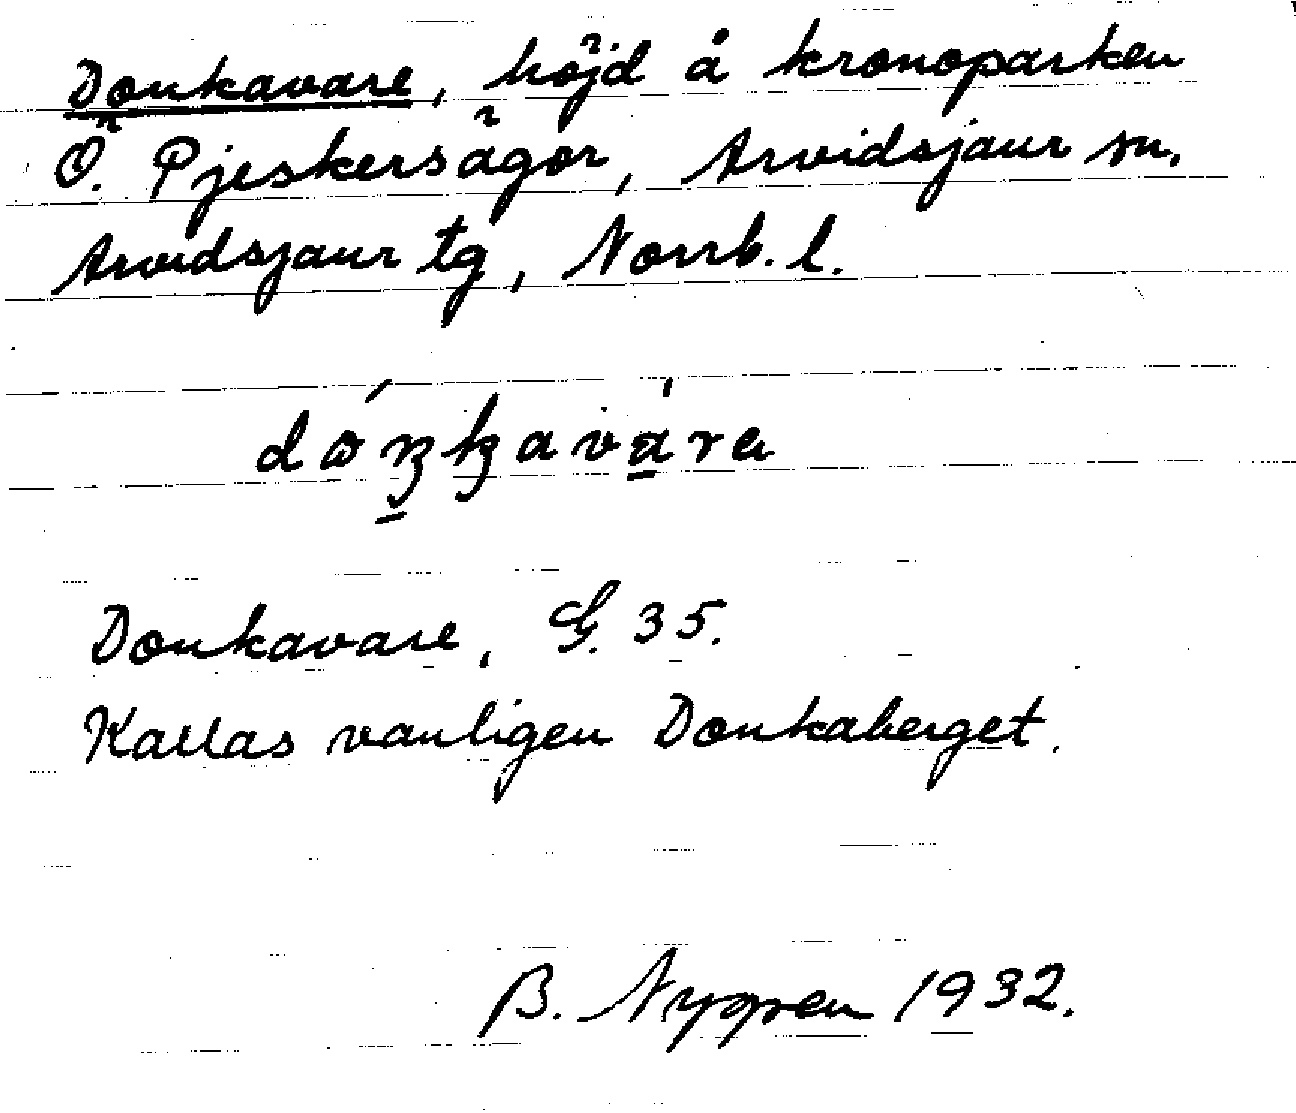 Donkavare, höjd å kronoparken
Ö. Pjeskersägor, Arvidsjaur sn.
Arvidsjaur tg, Norrb. l.
Donkavare, G. 35.
Kallas vanligen Donkaberget.
B. Nygren 1932.